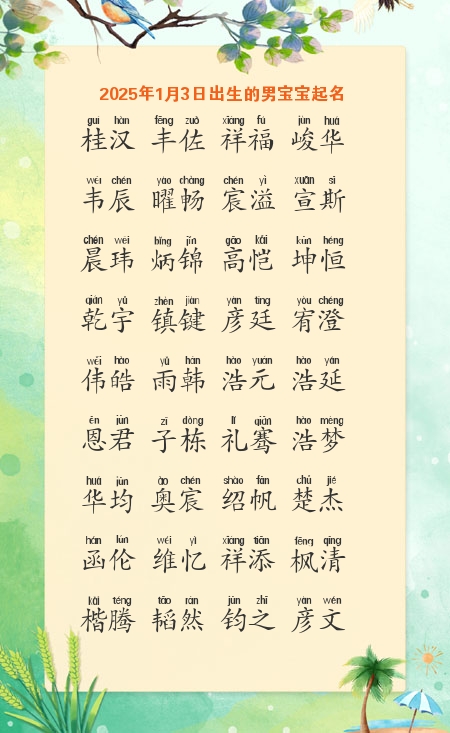 2025年1月3日出生的男宝宝起名
guì hàn fēng zuǒ xiáng fú jùn huá
桂汉 丰佐 祥福 峻华
wéi chén yào chàng chén yì xuān sī
韦辰 曜畅 宸溢 宣斯
chén wěi bǐng jǐn gāo kǎi kūn héng
晨玮 炳锦 高恺 坤恒
qián yǔ zhèn jiàn yàn tíng yòu chéng
乾宇 镇键 彦廷 宥澄
wěi hào yǔ hán hào yuán hào yán
伟皓 雨韩 浩元 浩延
ēn jūn zǐ dòng lǐ qiān hào mèng
恩君 子栋 礼骞 浩梦
huá jūn ào chén shào fān chǔ jié
华均 奥宸 绍帆 楚杰
hán lún wéi yì xiáng tiān fēng qīng
函伦 维忆 祥添 枫清
kǎi téng tāo rán jūn zhī yàn wén
楷腾 韬然 钧之 彦文